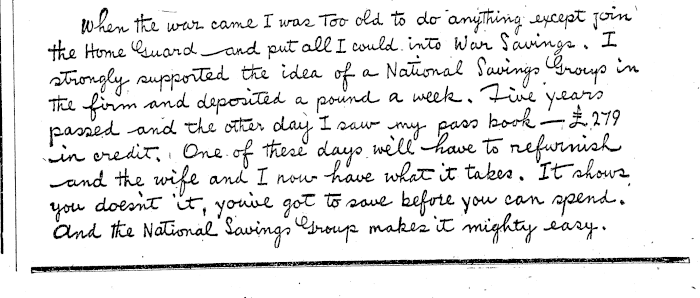 When the war came I was too old to do anything except join
the Home Guard — and put all I could into War Savings. I
strongly supported the idea of a National Savings Group in
the firm and deposited a pound a week. Five years
passed and the other day I saw my pass book — £279
in credit. One of these days we'll have to refurnish
and the wife and I now have what it takes. It shows
you doesn't it, you've got to save before you can spend.
And the National Savings Group makes it mighty easy.